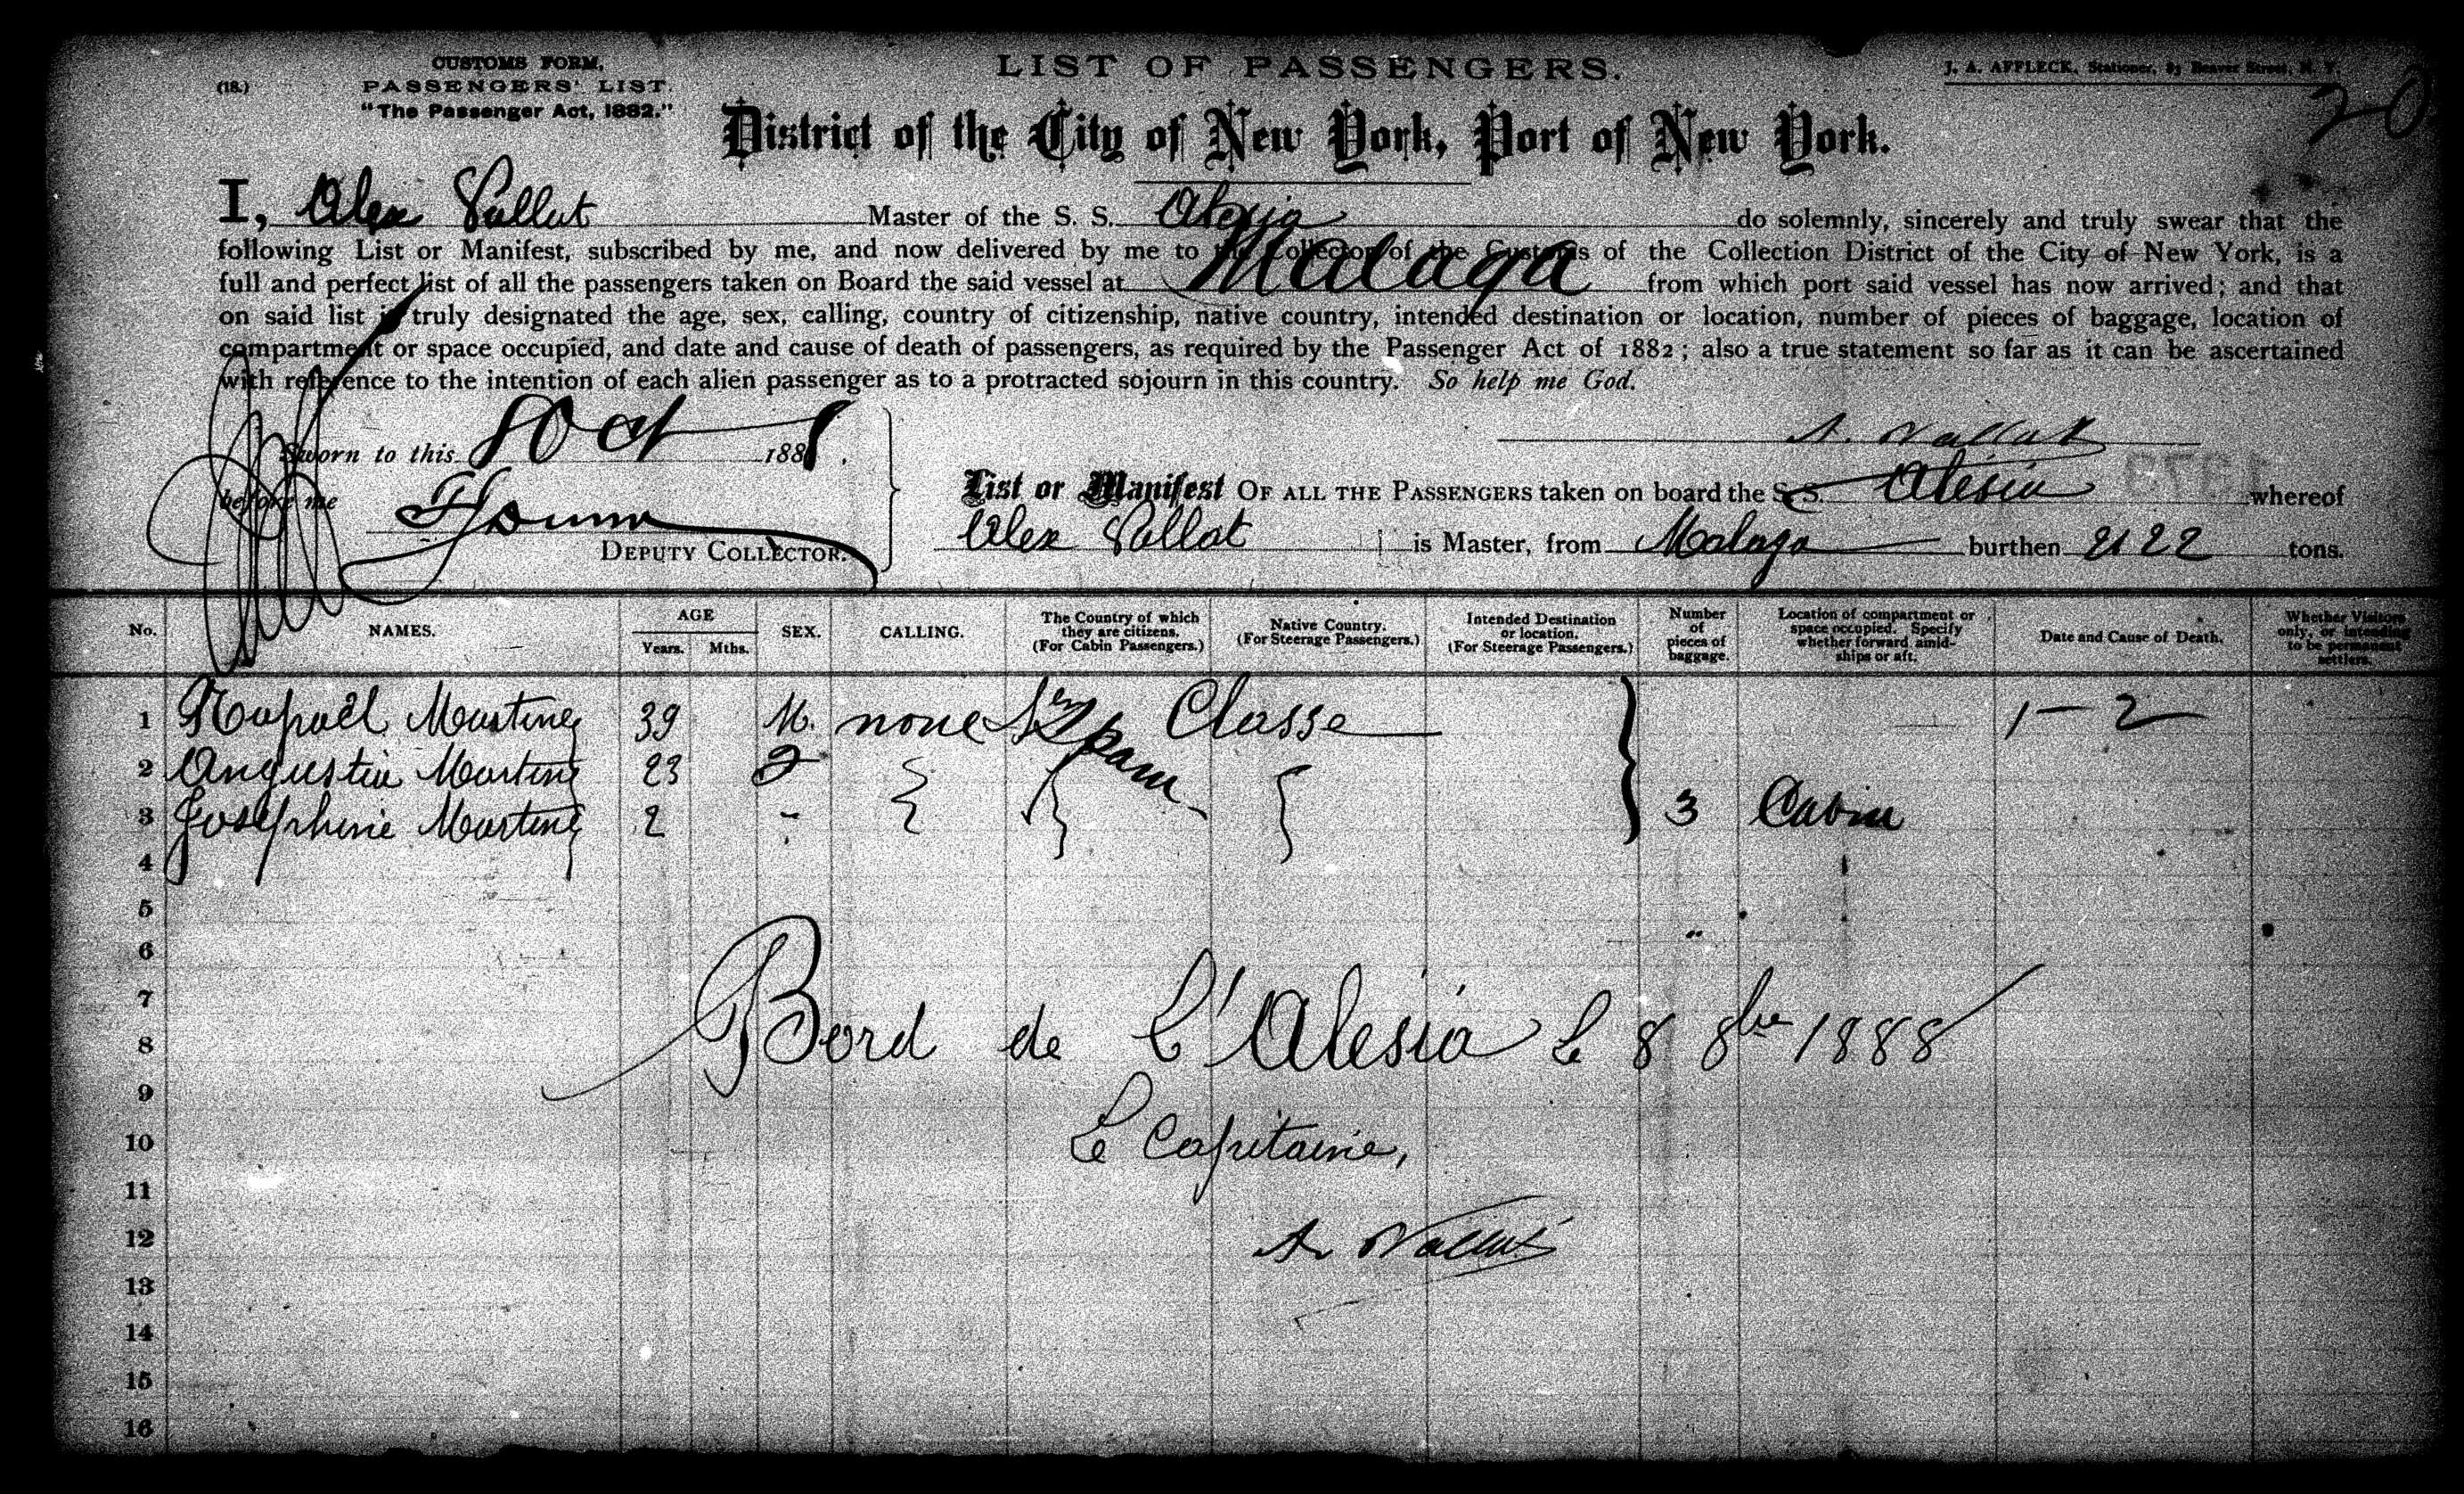 (18.)
CUSTOMS FORM,
PASSENGERS' LIST.
"The Passenger Act, 1882."
LIST OF PASSENGERS.
J. A. AFFLECK, Stationer, Beaver Street, N. Y.
20
District of the City of New York, Port of New York.
I, Alex Vallat Master of the S. S. Alesia do solemnly, sincerely and truly swear that the
following List or Manifest, subscribed by me, and now delivered by me to the Collector of the Customs of the Collection District of the City of New York, is a
full and perfect list of all the passengers taken on Board the said vessel at Malaga from which port said vessel has now arrived; and that
on said list is truly designated the age, sex, calling, country of citizenship, native country, intended destination or location, number of pieces of baggage, location of
compartment or space occupied, and date and cause of death of passengers, as required by the Passenger Act of 1882; also a true statement so far as it can be ascertained
with reference to the intention of each alien passenger as to a protracted sojourn in this country. So help me God.
Sworn to this 8 Oct 1888.
A. Vallat
before me
DEPUTY COLLECTOR.
List or Manifest OF ALL THE PASSENGERS taken on board the S.S. Alésia whereof
Alex Vallat is Master, from Malaga burthen 2122 tons.
No. NAMES. AGE Years. Mths. SEX. CALLING. The Country of which they are citizens. (For Cabin Passengers.) Native Country. (For Steerage Passengers.) Intended Destination or location. (For Steerage Passengers.) Number of pieces of baggage. Location of compartment or space occupied. Specify whether forward, amidships or aft. Date and Cause of Death. Whether Visitors only, or intending to be permanent settlers.
1 Rapaël Martinez 39 M. none Spain Classe 1-2
2 Angustia Martinez 23
3 Josephine Martinez 2 - 3 Cabin
4
5
6
7
8 Bord de L'Alesia le 8 8bre 1888
9
10 Le Capitaine,
11
12 A. Vallat
13
14
15
16